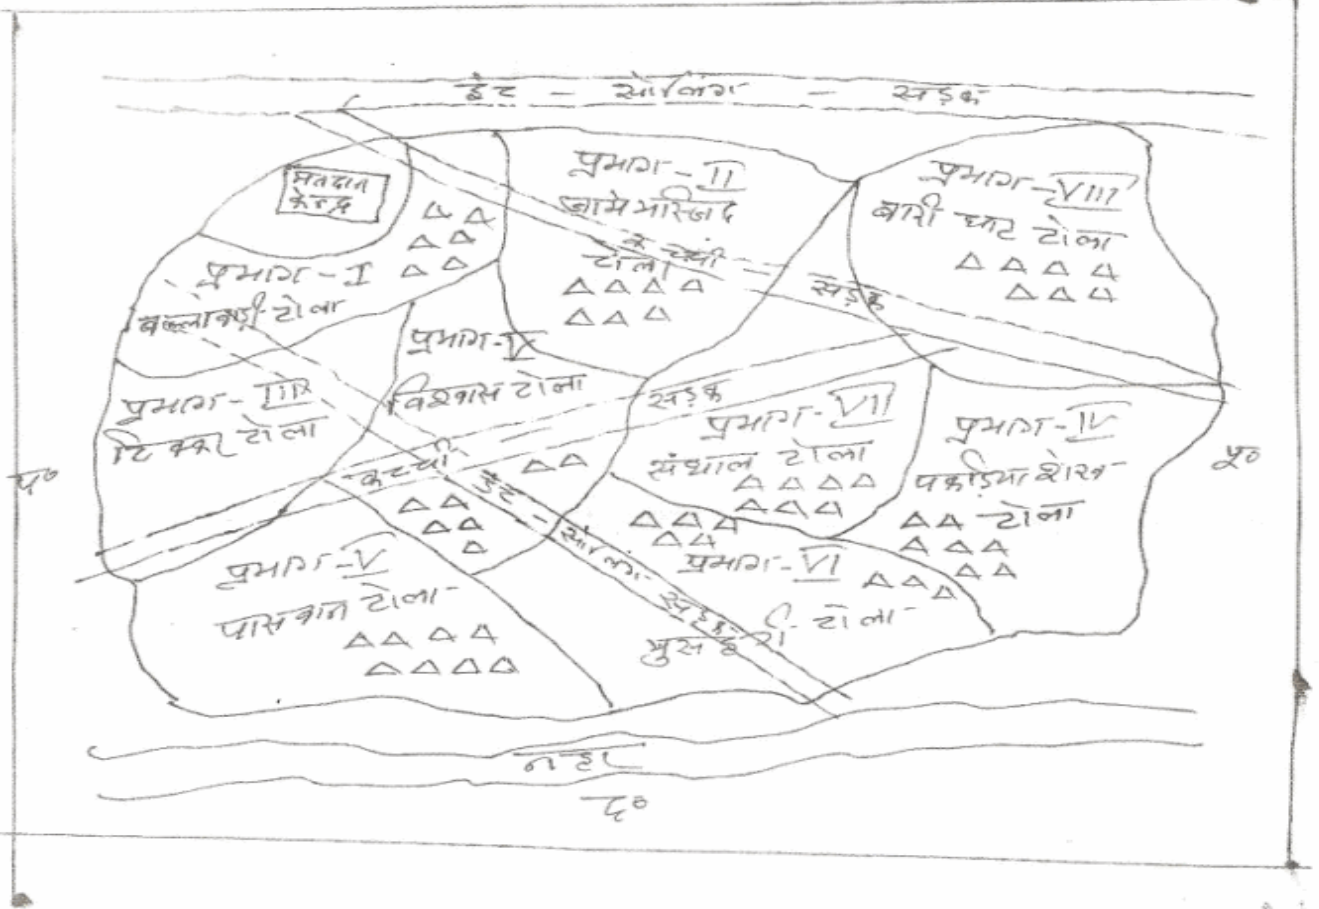 ईट - सोलिंग - सड़क
मतदान
केन्द्र
प्रभाग - I
प्रभाग - II
जामे मस्जिद
टोला
कच्ची
सड़क
प्रभाग - VIII
बारी घाट टोला
प्रभाग - V
विश्वास टोला
प्रभाग - III
टिक्कर टोला
सड़क
प्रभाग - VII
संथाल टोला
प्रभाग - IV
पकड़िया शेख
टोला
प०
पू०
कच्ची
ईट - सोलिंग
सड़क
प्रभाग - V
पासवान टोला
प्रभाग - VI
मुसहरी टोला
नहर
द०